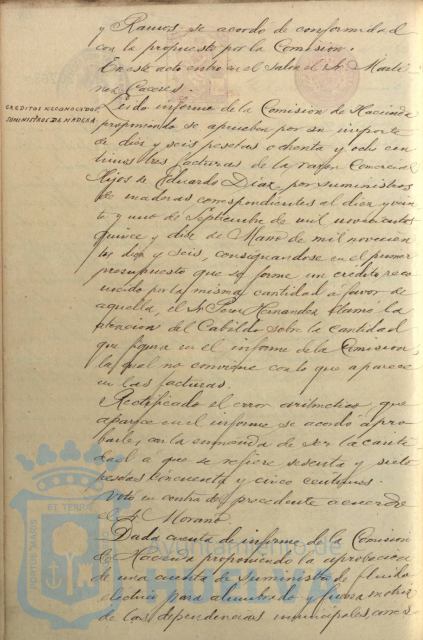 y Ramos se acordó de conformidad
con la propuesto por la Comision.
En este acto entró en el Salon el Sr. Marti
nez Caceres.
CREDITOS RECONOCIDOS
SUMINISTROS DE MADERA
Leido informe de la Comision de Hacienda
proponiendo se aprueben por su importe
de diez y seis pesetas ochenta y ocho cen
timos tres facturas de la razon Comercial
Hijos de Eduardo Diaz, por suministros
de maderas correspondientes al diez y vein
te y uno de Septiembre de mil novecientos
quince y diez de Marzo de mil novecien
tos diez y seis, consignandose en el primer
presupuesto que se forme un credito reco
nocido por la misma cantidad a favor de
aquella, el Sr. Perez Hernandez llamó la
atencion del Cabildo sobre la cantidad
que figura en el informe de la Comision,
la qual no convique con lo que aparece
en las facturas.
Rectificado el error aritmetico que
aparece en el informe se acordó apro
barle, con la enmienda de ser la canti
dad a que se refiere sesenta y siete
pesetas cincuenta y cinco centimos.
Votó en contra del precedente acuerdo
el Sr. Morano.
Dada cuenta de informe de la Comision
de Hacienda proponiendo la aprobacion
de una cuenta de suministro de fluido
electrico para alumbrado y fuerza motriz
de las dependencias municipales,
ET TERRAE
PORTUS MARIS
Ayuntamiento de